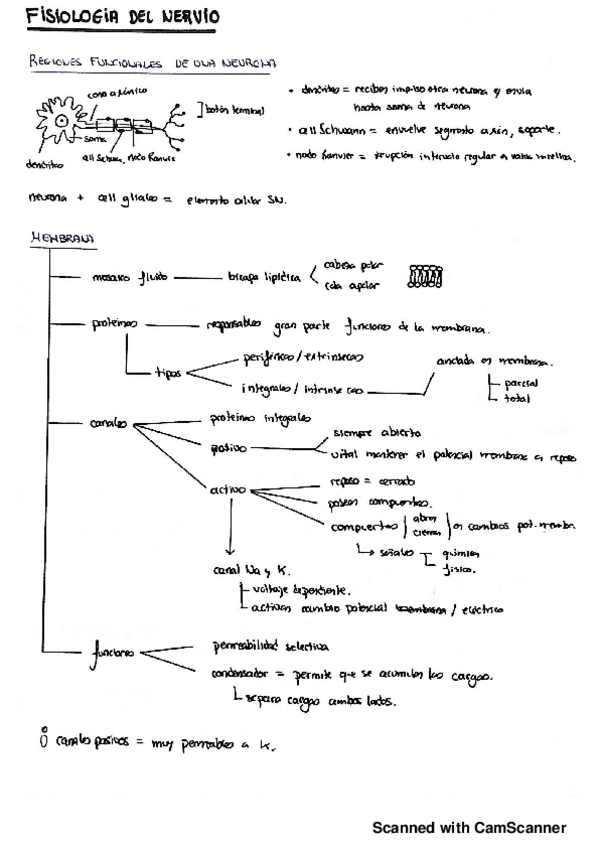 FISIOLOGIA DEL NERVIO
REGIONES FUNCIONALES DE UNA NEURONA
cono axónico
]botón terminal
soma
dendritas
cell Schwann, nodo Ranvier
• dendritas = reciben impulso otra neurona y envía
hasta soma de neurona
• cell Schwann = envuelve segmento axón, soporte.
• nodo Ranvier = intervalo regular a vaina mielina.
neurona + cell gliales = elemento celular SN.
MEMBRANA
mosaico fluido
bicapa lipídica
cabeza polar
cola apolar
proteínas
responsables gran parte funciones de la membrana.
tipos
periféricas / extrínsecas
integrales / intrínsecas
anclada en membrana.
parcial
total
canales
proteínas integrales
pasivo
siempre abierto
vital mantener el potencial membrana en reposo
activo
reposo = cerrado
poseen compuertas.
compuertas
abren
cierran
en cambios pot. membr.
señales
química
física.
canal Na y K.
voltaje dependiente.
activan cambio potencial membrana / eléctrico
funciones
permeabilidad selectiva
condensador = permite que se acumulen las cargas.
separa cargas ambos lados.
canales pasivos = muy permeables a K.
Scanned with CamScanner